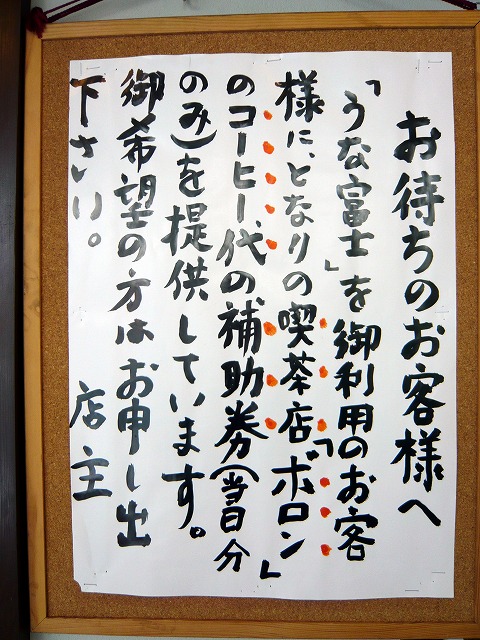 お待ちのお客様へ
「うな富士」を御利用のお客
様に、となりの喫茶店「ボロン」
のコーヒー代の補助券(当日分
のみ)を提供しています。
御希望の方はお申し出
下さい。
店主